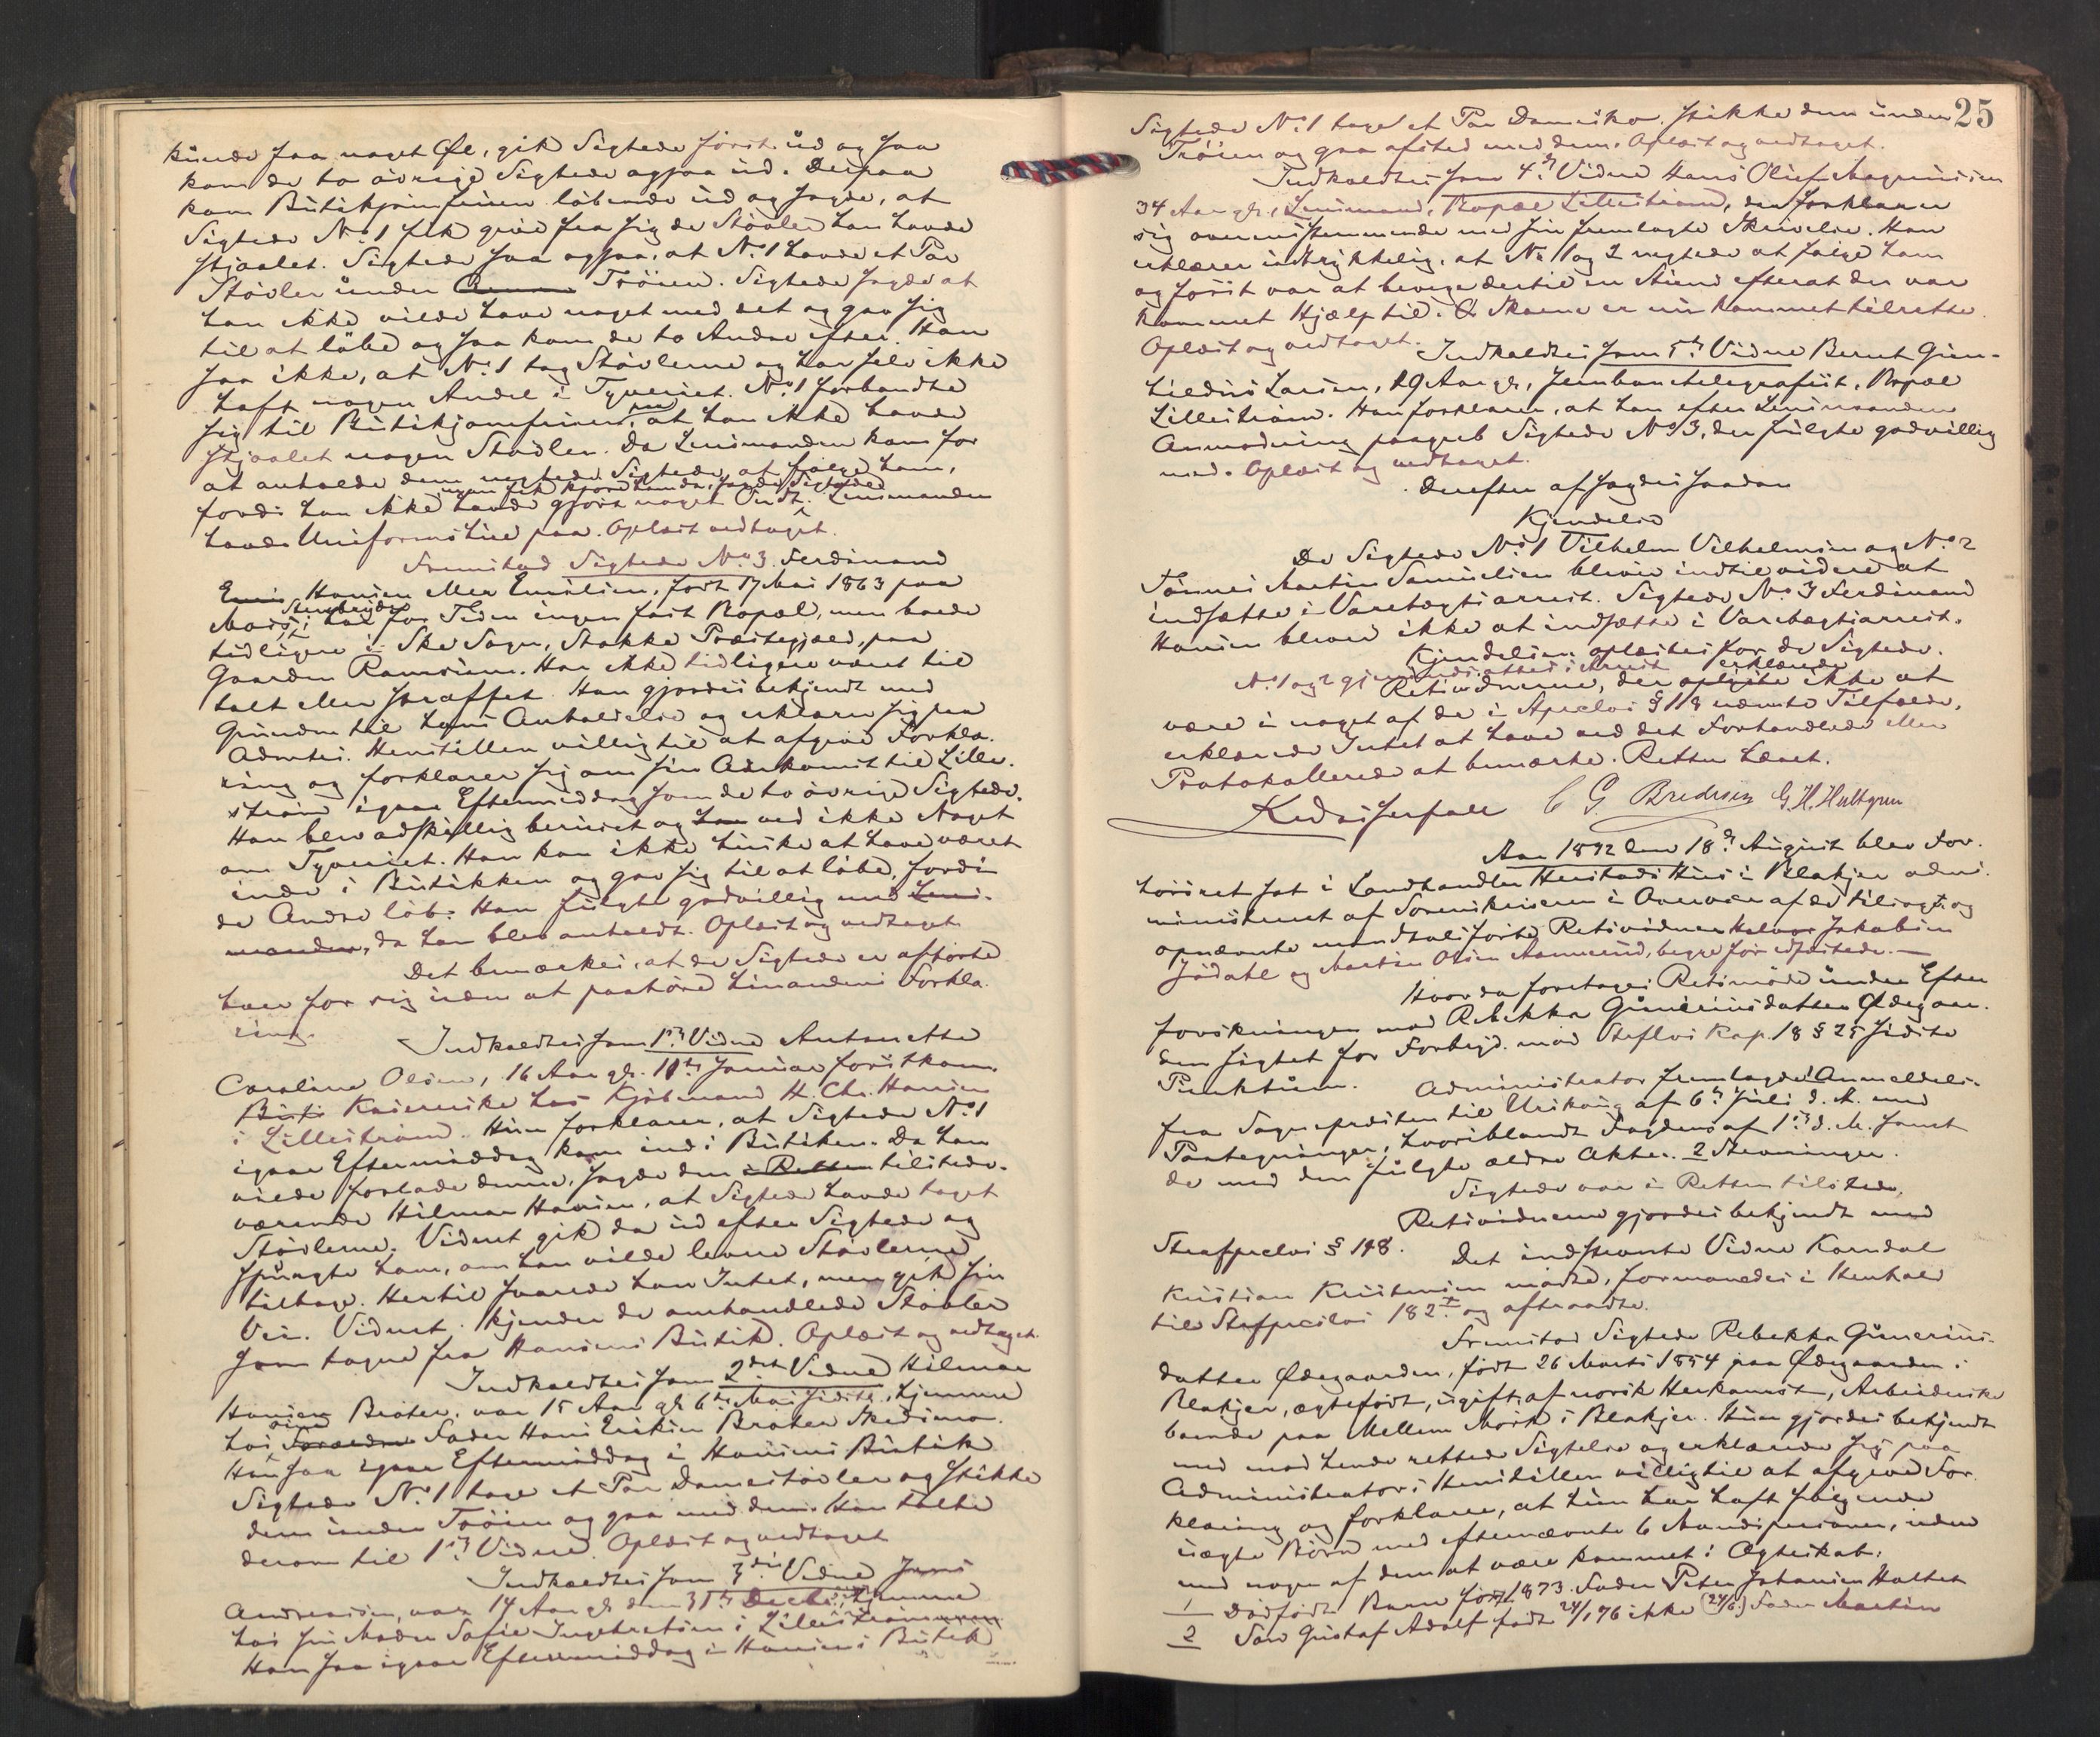 kunde faa noget Øl, gik Sigtede först ud og saa
kom de to övrige Sigtede ogsaa ud. Derpaa
kom Butikjomfruen løbende ud og sagde, at
Sigtede No. 1 fik give fra sig de Støvler han havde
stjaalet. Sigtede saa ogsaa, at No. 1 havde et Par
Støvler under Tröien. Sigtede sagde at
han ikke vilde have noget med det og gav sig
til at løbe og saa kom de to Andre efter. Han
saa ikke, at No. 1 tog Støvlerne og har selv ikke
haft nogen Andel i Tyveriet. No. 1 forbandte
sig til Butikjomfruen paa, at han ikke havde
stjaalet nogen Støvler. Da Lensmanden kom for
at anholde dem negtede Sigtede at følge ham,
fordi han ikke havde gjort noget Ondt. Lensmanden
havde Uniformshue paa. Oplæst vedtaget.
Fremstod Sigtede No. 3 Ferdinand
Hansen eller Emilsen, født 17 Mai 1863 paa
Moss, Stenhugger, har for Tiden ingen fast Bopæl, men boede
tidligere i Ske Sogn, Stokke Præstegjæld, paa
Gaarden Ramsum. Har ikke tidligere været til
talt eller straffet. Han gjordes bekjendt med
Grunden til hans Anholdelse og erklærer sig paa
Admtrs. Henstillen villig til at afgive Forkla-
ring og forklarer sig om sin Ankomst til Lille-
strøm igaar Eftermiddag som de to øvrige Sigtede.
Han blev adskillig beruset og ved ikke Noget
om Tyveriet. Han kan ikke huske at have været
inde i Butikken og gav sig til at løbe, fordi
de Andre løb. Han fulgte godvillig med Lens-
manden, da han blev anholdt. Oplæst og vedtaget
Det bemærkes, at de Sigtede er afhørte
hver for sig uden at paahøre hinandens Forkla-
ring.
Indkaldtes som 1ste Vidne Antonette
Caroline Olsen, 16 Aar gl. 10de Januar förstkom.
Buti Kasererske hos Kjöbmand H. Chr. Hansen
i Lilleström. Hun forklarer, at Sigtede No. 1
igaar Eftermiddag kom ind i Butiken. Da han
vilde forlade denne, sagde den i Retten tilstede-
værende Hilmar Hansen, at Sigtede havde taget
Støvlerne. Vidnet gik da ud efter Sigtede og
spurgte ham, om han vilde levere Støvlerne
tilbage. Hertil svarede han Intet, men gik sin
Vei. Vidnet kjender de omhandlede Støvler
som tagne fra Hansens Butik. Oplæst og vedtaget
Indkaldtes som 2det Vidne Hilmar
Hansen Braten, var 15 Aar gl. 6te Mai sidste, hjemme
hos sine Forældre Fader Hans Eriksen Braten Skedsmo.
Han saa igaar Eftermiddag i Hansens Butik
Sigtede No. 1 tage et Par Damestøvler og stikke
dem under Tröien og gaa med dem. Han talte
derom til 1ste Vidne. Oplæst og vedtaget
Indkaldtes som 3die Vidne Jens
Andreassen, var 14 Aar gl. den 31te Decbr., hjemme
hos sin Moder Sofie Ingebretsen i Lilleströmmen
Han saa igaar Eftermiddag i Hansens Butik
25
Sigtede No. 1 tage et Par Damesko, stikke dem under
Tröien og gaa afsted med dem. Oplæst og vedtaget.
Indkaldtes som 4de Vidne Hans Oluf Magnussen
34 Aar gl., Lensmand, Bopæl Lilleström, der forklarer
sig overensstemmende med sin fremlagte Skrivelse. Han
erklærer udtrykkelig, at No. 1 og 2 negtede at følge ham
og först var at bevæge dertil en Stund efterat der var
kommet Hjælp til. Skoene er nu kommet tilrette.
Oplæst og vedtaget.
Indkaldtes som 5te Vidne Bernt Gun-
hildius Larsen, 29 Aar gl., Jernbanetelegrafist, Bopæl
Lilleström. Han forklarer, at han efter Lensmandens
Anmodning paagreb Sigtede No. 3, der fulgte godvillig
med. Oplæst og vedtaget.
Derefter afsagdes saadan
Kjendelse
De Sigtede No. 1 Vilhelm Vilhelmsen og No. 2
Tönnes Martin Samuelsen bliver indtil videre at
indsætte i Varetægtsarrest. Sigtede No. 3 Ferdinand
Hansen bliver ikke at indsætte i Varetægtsarrest.
Kjendelsen oplæstes for de Sigtede.
No. 1 og 2 gjenindsattes i Arrest
Retsvidnerne, der erklærede ikke at
være i noget af de i Sprclov § 118 nævnte Tilfælde,
erklærede Intet at have ved det Forhandlede eller
Protokollerede at bemærke. Retten hævet.
C G Bredesen G. H. Hultgren
Aar 1892 den 18de August blev For-
hörsret sat i Landhandler Herstads Hus i Blakjer admi-
ministreret af Sorenskriveren i Overvær af de tilsagte og
opnævnte mandtalsførte Retsvidner Halvor Jakobsen
Jödahl og Martin Olsen Aamund, begge før edfæstede.—
Hvorda foretoges Retsmøde under Efter
forskningen mod Rebekka Gunerius datter Ødegaar-
den sigtet for Forbryd. mod Strflov Kap. 18 § 25 sidste
Punktum.
Administrator fremlagde Anmeldelse
fra Sogneprästen til Urskoug af 6te Juli d. A. med
Paategninger, hvoriblandt Fogdens af 1ste d. M. samt
de med den fulgte ældre Akter. 2 Stevninger.
Sigtede var i Retten tilstede.
Retsvidnerne gjordes bekjendt med
Straffprclov § 118.
Det indstevnte Vidne Korndal
Kristian Kristensen mødte, formanedes i Henhold
til Strfprclov 182 og aftraadte.
Fremstod Sigtede Rebekka Gunerius-
datter Ødegaarden, født 26 Marts 1854 paa Ødegaarden i
Blakjer, ægtefödt, ugift, af norsk Herkomst, Arbeiderske
boende paa Mellem Mork i Blakjer. Hun gjordes bekjendt
med mod hende rettede Sigtelse og erklærede sig paa
Administrators Henstillen villig til at afgive For-
klaring og forklarer, at hun har haft følgende
uægte Börn med efternævnte 6 Mandspersoner, uden
med nogen af dem at være kommet i Ægteskab:
1 Dödfödt Barn født 1873. Fader Peter Johansen Holtet
2 Søn Gustaf Adolf født 24/1 76 ikke (24/6) Fader Martin